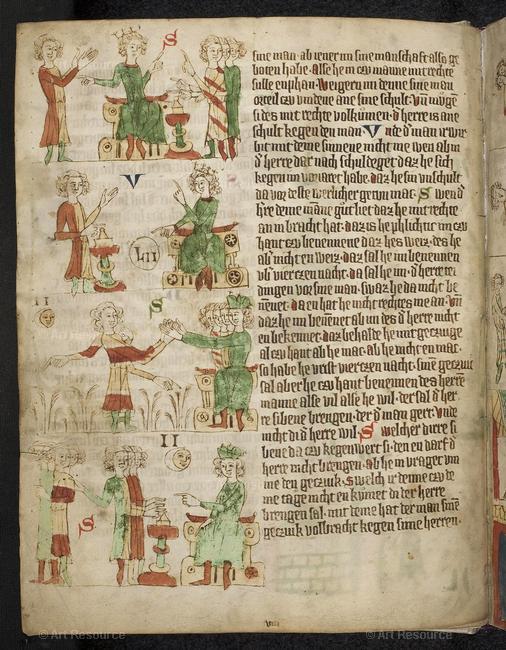 S
V
LII
II
S
II
S
sine man· ab iener im sine manschaft also ge
boten habe· Alse he im czu manne mit rechte
sulle enphan· Weigern im denne sine man
orteil czu vindene ane sine schult· vñ
si des mit rechte volkumen· d' herre is ane
schult kegen den man V nde d' man
bit mit deme me nicht me wen ab in
d' herre dar nach schuldeget daz he sich
kegen im vorvaret habe· daz he sin vnschult
da vor deste gerun mac· S wen d'
h're deme manne gut liet daz he mit rechte
an in bracht hat· daz is he phlichtic im czu
hant czu benennene daz hes weiz· des he
ab' nicht en weiz· daz sal he im benennen
vb' vierczen nacht· da sal he im· d' herre tei
dingen vor sine man· swaz he da nicht be
nēnet· da en hat he nicht rechtes me an· Vñ
daz he im benēnet ab im des d' herre nicht
en bekennet· daz behalde he mit geczuge
al czu hant ab he mac· ab he nicht en mac·
so habe he virst vierczen nacht· sine geczuic
sal aber he czu hant benennen des herren
manne alse vil alse he wil· der sal d' her
re sibene brengen· der d' man gert· vnde
nicht di d' herre wil· S welcher dirre si
bene da czu kegenwert si· den en darf d'
herre nicht brengen· ab he in vragen vm
me den geczuk· Swelch ir denne czu de
me tage nicht en kumet den der herre
brengen sal· mit deme hat der man sinē
geczuk volbracht kegen sime herren·
© Art Resource
© Art Resource